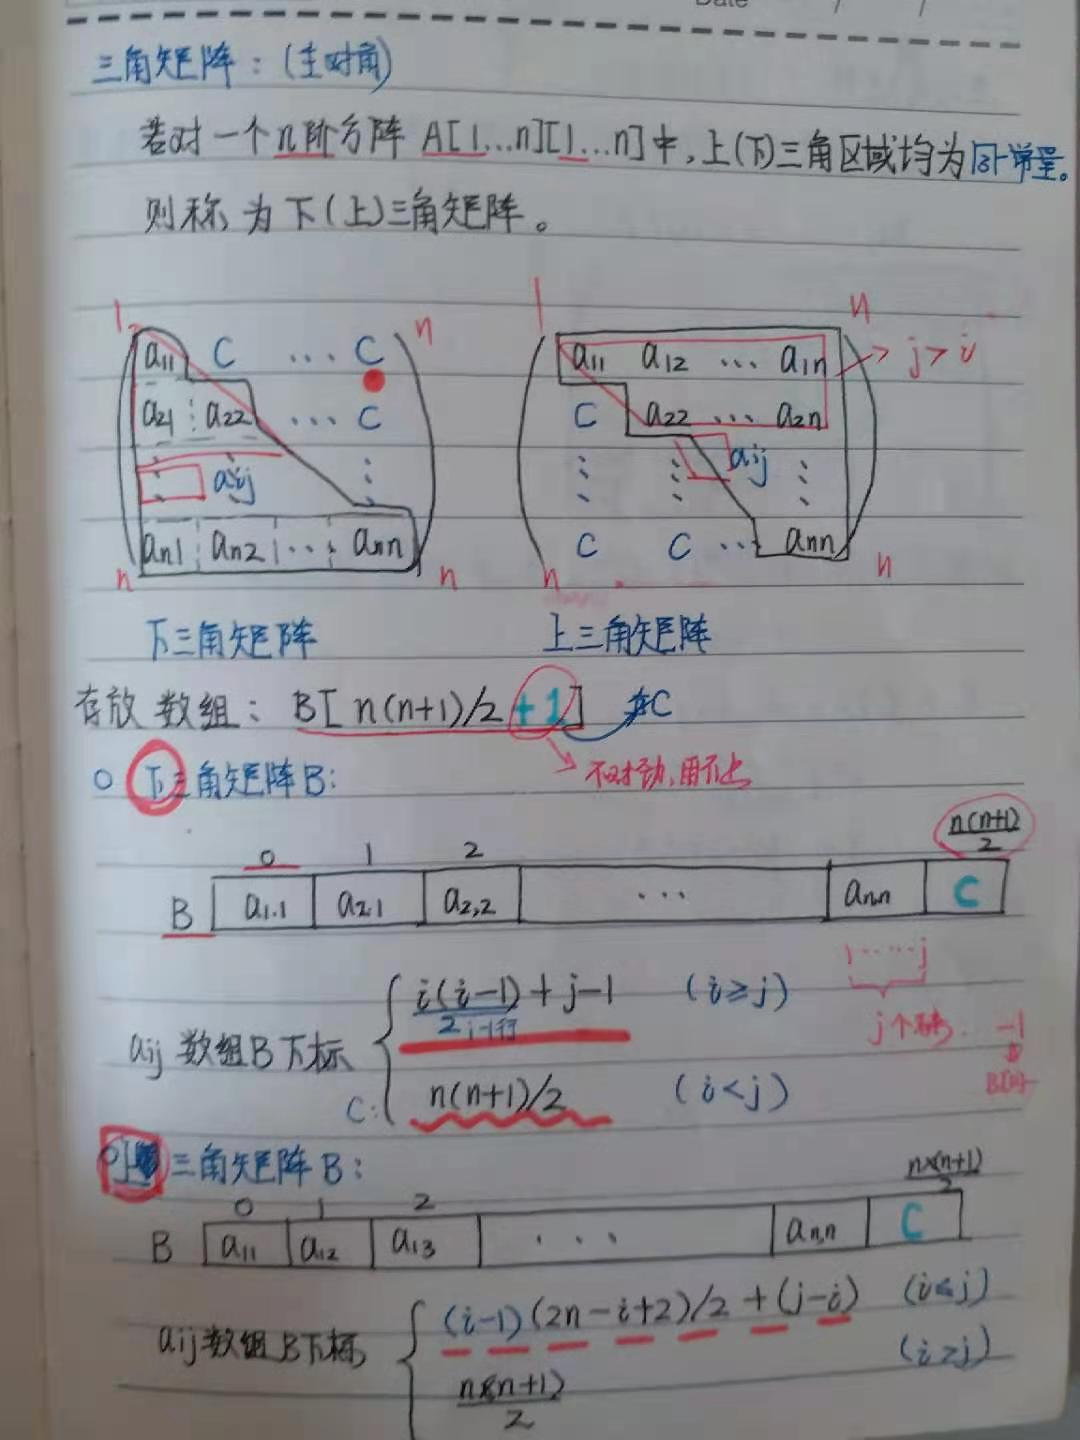 Date / /
三角矩阵：(主对角)
若对一个n阶方阵 A[1...n][1...n]中，上(下)三角区域均为同一常量。
则称为下(上)三角矩阵。
1 n
a11 C ... C
a21 a22 ... C
⋮ aij ⋮
an1 an2 ... ann
n n
1 n
a11 a12 ... a1n → j>i
C a22 ... a2n
⋮ ⋮ aij ⋮
C C ... ann
n n
下三角矩阵 上三角矩阵
存放数组：B[n(n+1)/2+1] C
→ 不对称,用不上
○ 下三角矩阵B：
0 1 2 n(n+1)/2
B a1.1 a2.1 a2,2 ... an,n C
aij 数组B下标 { i(i-1)/2 + j-1 (i≥j)
i-1行
1......j
j个元素 -1
C: n(n+1)/2 (i<j)
上三角矩阵B：
0 1 2 n×(n+1)/2
B a11 a12 a13 ... an,n C
aij数组B下标 { (i-1)(2n-i+2)/2 + (j-i) (i≤j)
n×(n+1)/2 (i>j)